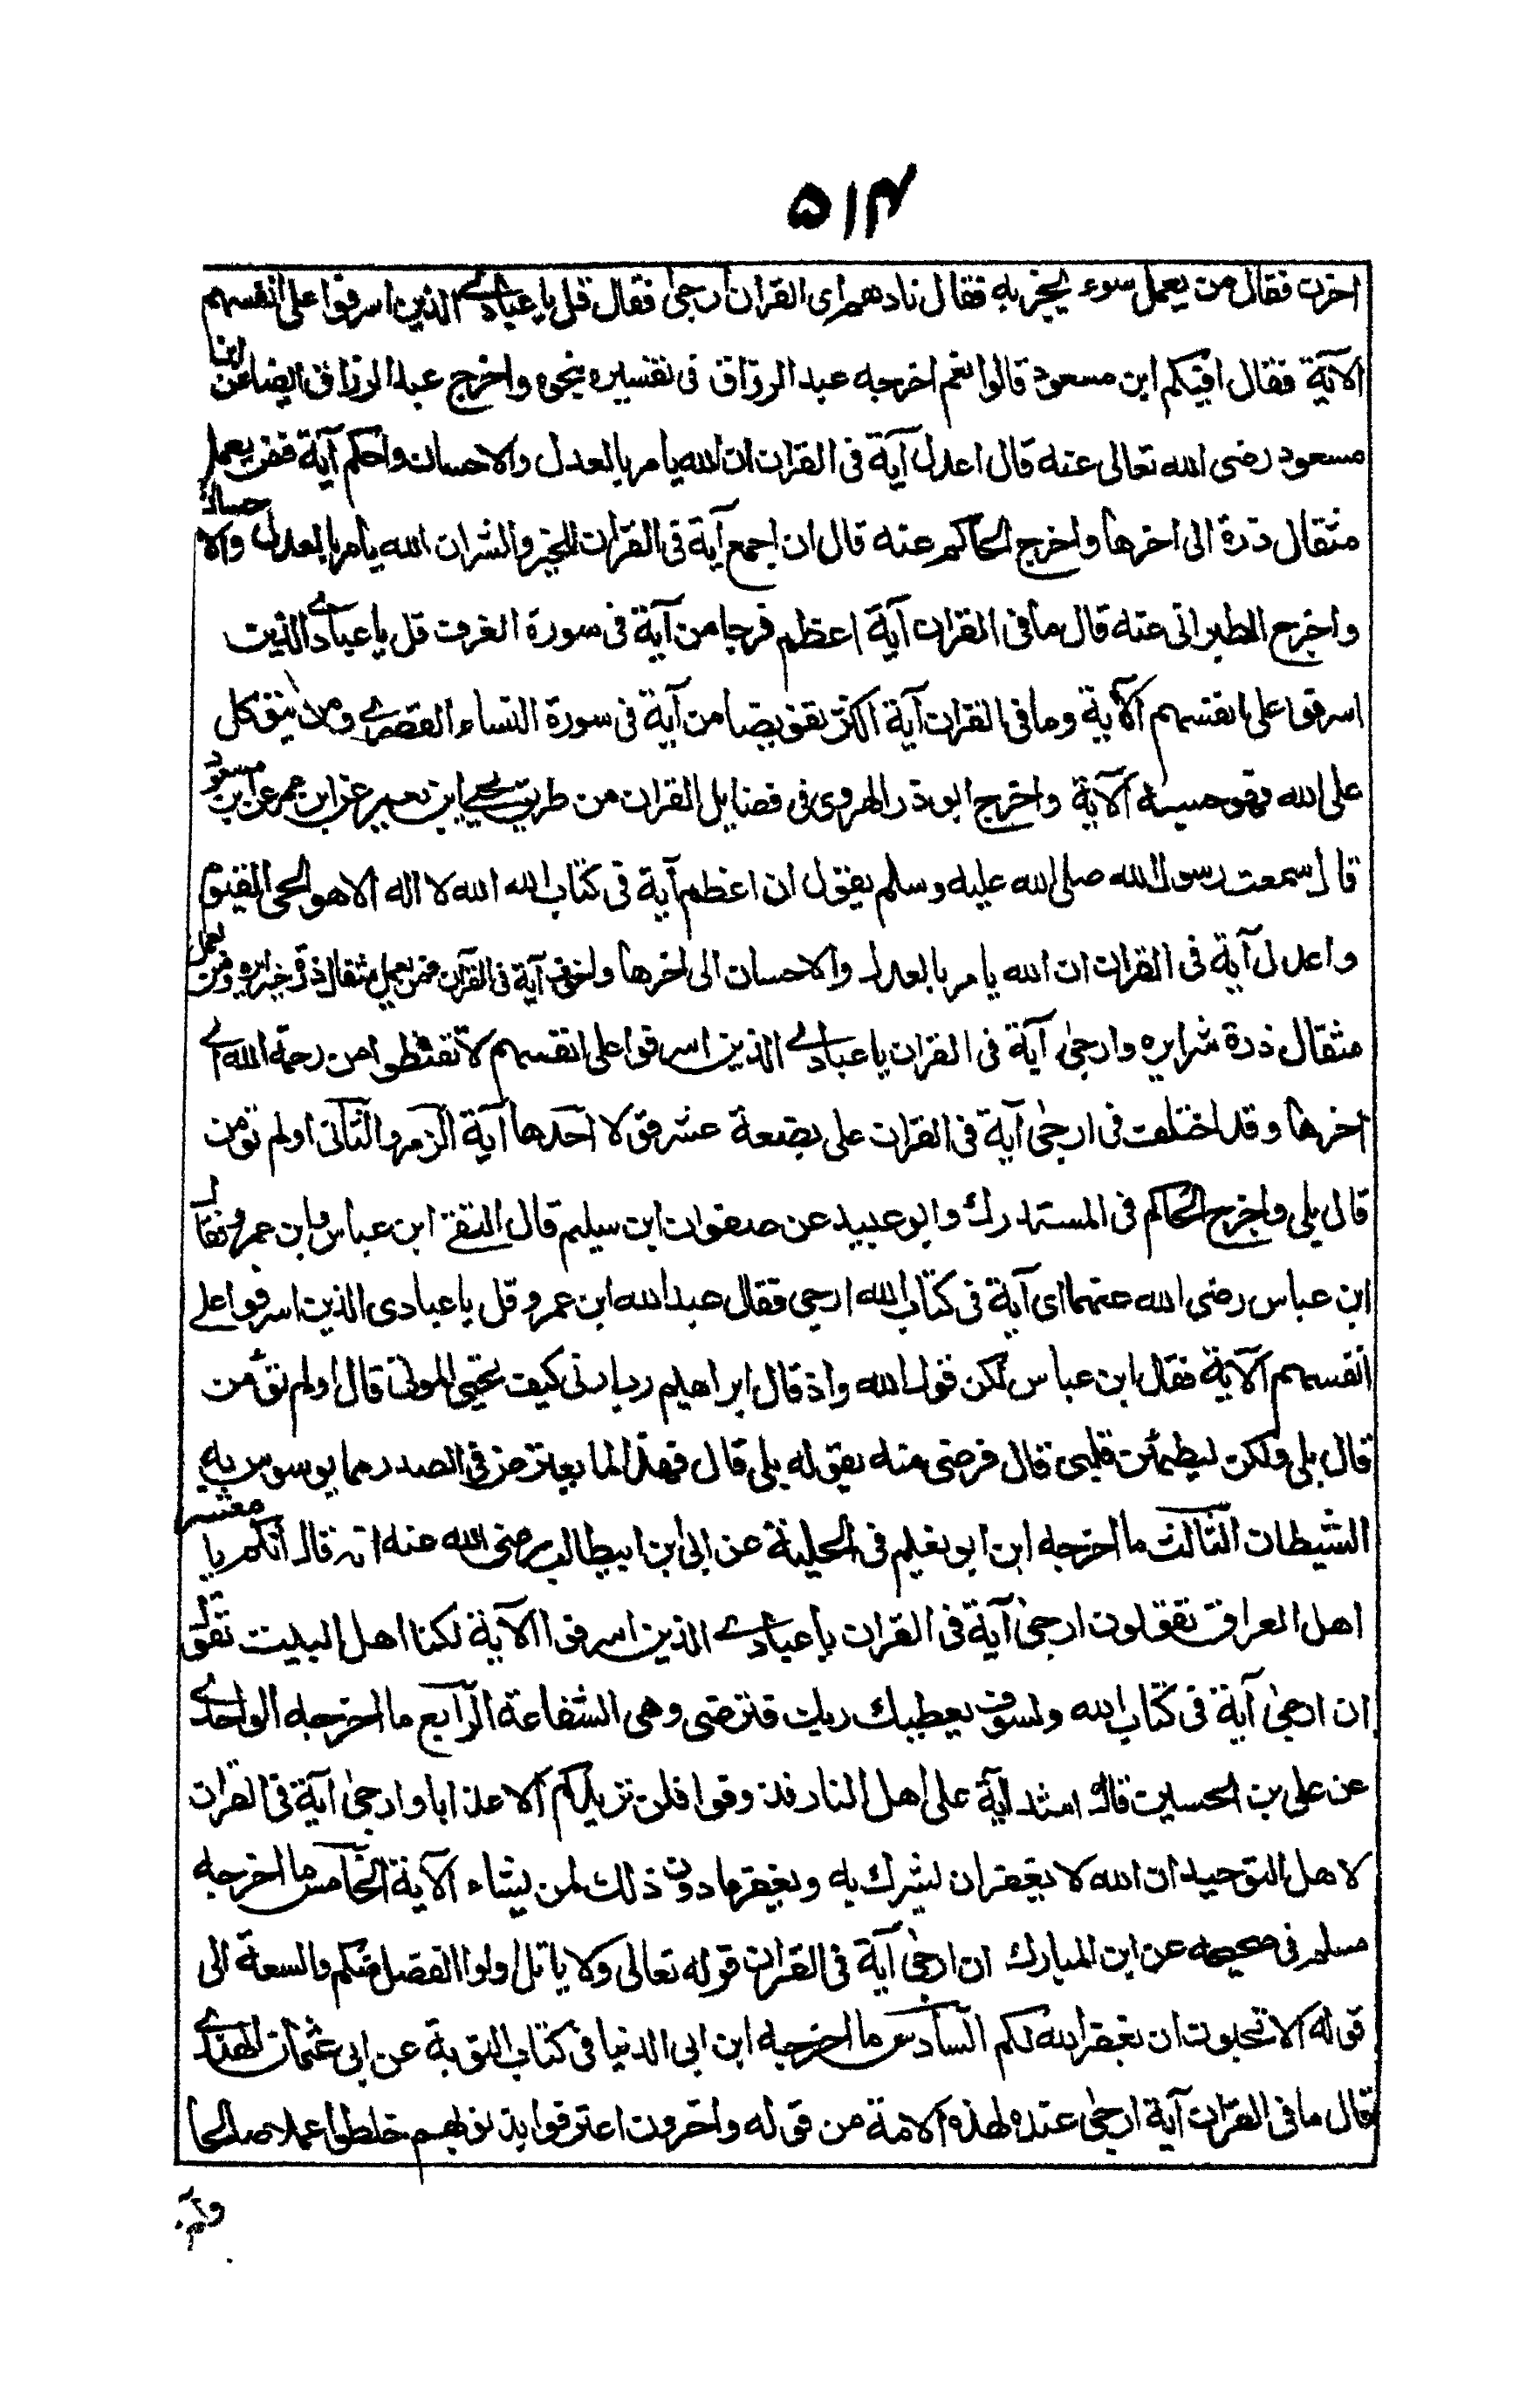 ۵۱۴
اخزن فقال من يعمل سوء يجز به فقال نادهم اى القران ارجى فقال قل يا عبادي الذين اسرفوا على انفسهم
الآية فقال افيكم ابن مسعود قالوا نعم اخرجه عبد الرزاق فى تفسيره بنحوه واخرج عبد الرزاق ايضا عن ابن
مسعود رضى الله تعالى عنه قال اعدل آية فى القران ان الله يامر بالعدل والاحسان واحكم آية فمن يعمل
مثقال ذرة الى اخرها واخرج الحاكم عنه قال ان اجمع آية فى القران للخير والشر ان الله يامر بالعدل والاحسان
واخرج الطبرانى عنه قال ما فى القران آية اعظم فرجا من آية فى سورة الغرف قل يا عبادي الذين
اسرفوا على انفسهم الآية وما فى القران آية اكثر تفويضا من آية فى سورة النساء القصرى ومن يتوكل
على الله فهو حسبه الآية واخرج ابو ذر الهروى فى فضايل القران من طريق يحيى ابن يعمر عن ابن عمر عن ابن مسعود
قال سمعت رسول الله صلى الله عليه وسلم يقول ان اعظم آية فى كتاب الله الله لا اله الا هو الحى القيوم
واعدل آية فى القران ان الله يامر بالعدل والاحسان الى اخرها واخوف آية فى القران فمن يعمل مثقال ذرة خيرا يره ومن يعمل
مثقال ذرة شرا يره وارجى آية فى القران يا عبادي الذين اسرفوا على انفسهم لا تقنطوا من رحمة الله اے
اخرها وقد اختلف فى ارجى آية فى القران على بضعة عشر قولا احدها آية الزمر والثانى اولم تؤمن
قال بلى واخرج الحاكم فى المستدرك وابو عبيد عن صفوان ابن سليم قال التقى ابن عباس وابن عمرو فقال
ابن عباس رضى الله عنهما اى آية فى كتاب الله ارجى فقال عبد الله ابن عمرو قل يا عبادى الذين اسرفوا على
انفسهم الآية فقال ابن عباس لكن قول الله واذ قال ابراهيم رب ارنى كيف تحيى الموتى قال اولم تؤمن
قال بلى ولكن ليطمئن قلبى قال فرضى منه بقوله بلى قال فهذا لما يعترض فى الصدر مما يوسوس به
الشيطان الثالث ما اخرجه ابن ابو نعيم فى الحلية عن ابى بن ابيطالب رضى الله عنه انه قال انكم يا معشر
اهل العراق تقولون ارجى آية فى القران يا عبادي الذين اسرفوا الآية لكنا اهل البيت نقول
ان ارجى آية فى كتاب الله ولسوف يعطيك ربك فترضى وهى الشفاعة الرابع ما اخرجه الواحدي
عن على بن الحسين قال اشد آية على اهل النار فذوقوا فلن نزيدكم الا عذابا وارجى آية فى القران
لاهل التوحيد ان الله لا يغفر ان يشرك به ويغفر ما دون ذلك لمن يشاء الآية الخامس ما اخرجه
مسلم فى صحيحه عن ابن المبارك ان ارجى آية فى القران قوله تعالى ولا ياتل اولوا الفضل منكم والسعة الى
قوله الا تحبون ان يغفر الله لكم السادس ما اخرجه ابن ابى الدنيا فى كتاب التوبة عن ابى عثمان الهندي
قال ما فى القران آية ارجى عنده لهذه الامة من قوله واخرون اعترفوا بذنوبهم خلطوا عملا صالحا